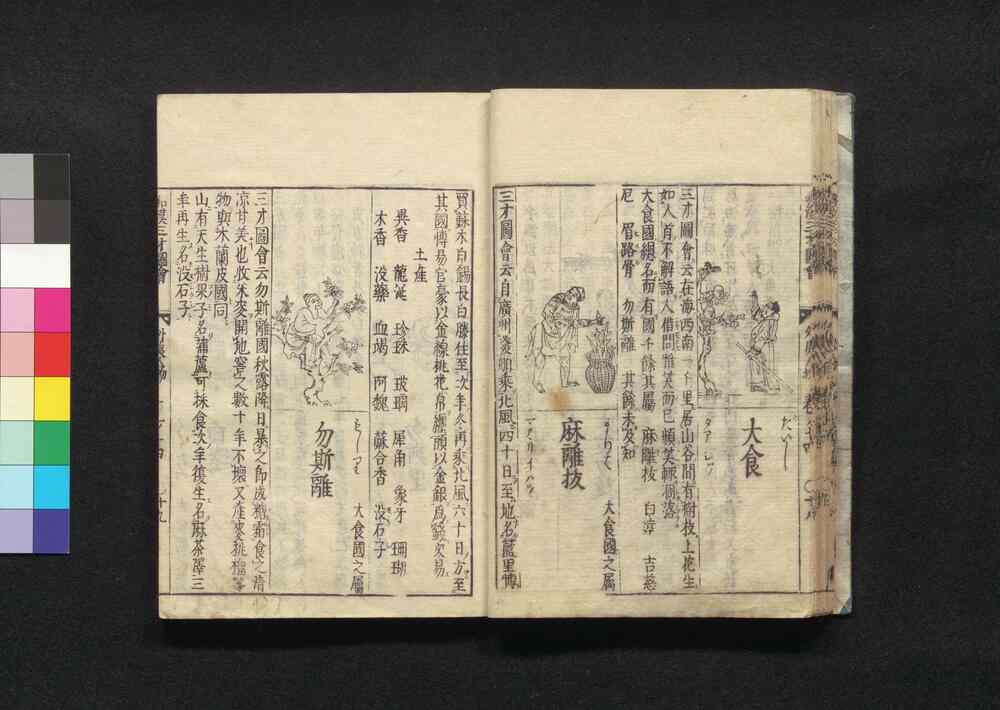 大食
たいし
三才圖會云在海西南一千里居山谷間有樹枝上花生
如人首不解語人借問惟笑而已頻笑輒落
大食國總名而有國千餘其屬 麻離拔 白達 吉慈
尼 眉路骨 勿斯離 其餘未及知
麻離拔
大食國之屬
三才圖會云自廣州發舶乘北風四十日至地名藍里博
買蘇木白錫長白藤住至次年冬再乘北風六十日方至
其國博易官豪以金線挑花帛纏頭以金銀爲錢交易
土産
異香 龍涎 珍珠 玻璃 犀角 象牙 珊瑚
木香 没藥 血竭 阿魏 蘇合香 没石子
勿斯離
大食國之屬
三才圖會云勿斯離國秋露降日暴之即成糖霜食之清
凉甘美也收米麥開地窖之數十年不壞又産麥桃榴等
物與木蘭皮國同
山有天生樹果子名蒲蘆可採食次年復生名麻茶澤三
年再生名没石子